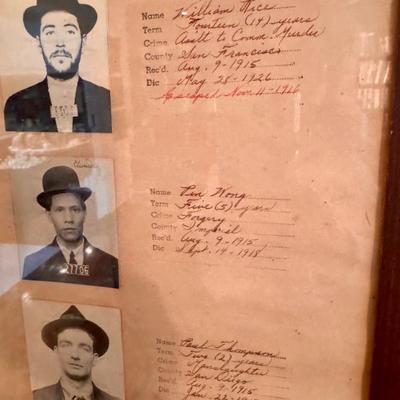 Name William Rice
Term Fourteen (14) years
Crime Asslt to Comm. Murder
County San Francisco
Rec'd. Aug. 9-1915
Dic May 28-1926
Escaped Nov. 11-1916
Chinese
Name Pen Wong
Term Five (5) years
Crime Forgery
County Imperial
Rec'd. Aug. 9-1915
Dic Sept. 14-1918
27786
Name Paul Thompson
Term Two (2) years
Crime Manslaughter
County San Diego
Rec'd Aug. 9-1915
Dic Jan. 22-